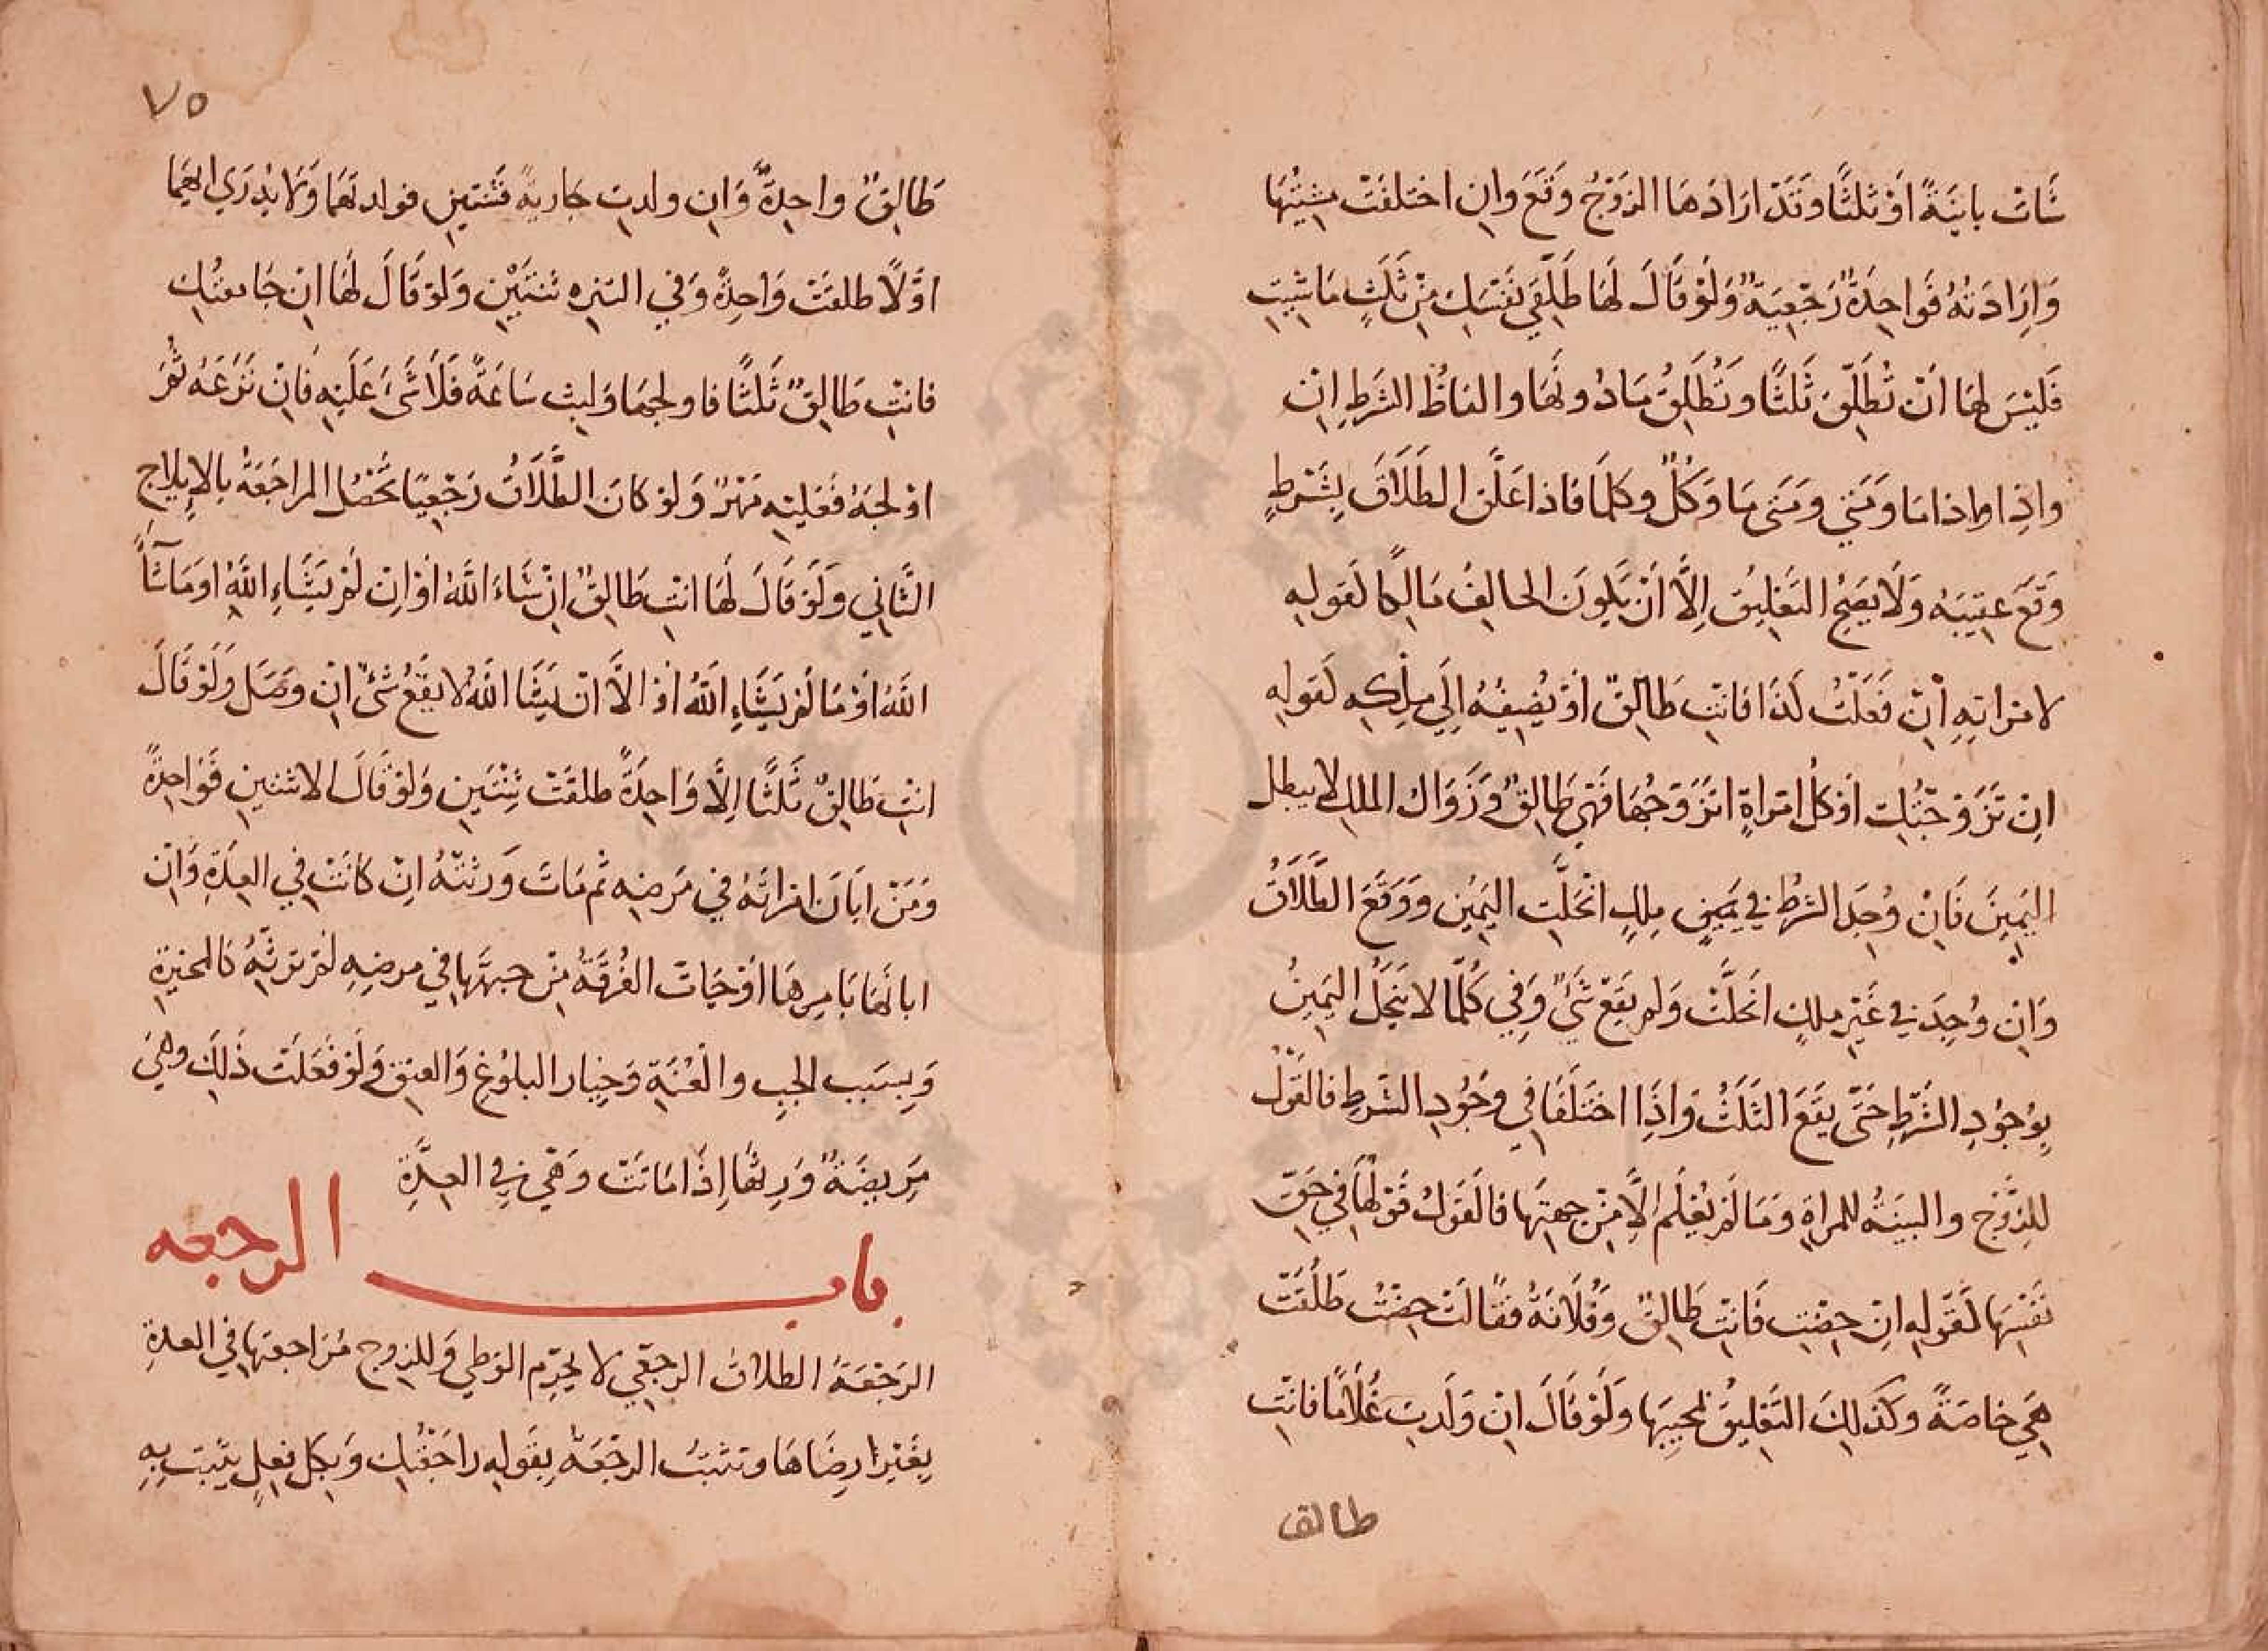 شَاتْ باينَةً اَوْ ثلثًا وقَدْ ارَادَهَا الزَوْجُ وقَعَ وَان اختَلَفَتْ مشيَّتُهَا
وَارَادَتهُ فَواحِدَةٌ رَجْعِيَةٌ وَلَوْ قَالَ لهَا طَلِّقي نفسَكِ مِنْ ثَلَثٍ مَا شيتِ
فَليْسَ لهَا اَنْ تُطَلِّقَ ثَلثًا وتُطَلِقُ مَا دُونهَا والفاظُ الشرطِ اِنْ
واِذا واذا مَا وَمَتى ومَتى مَا وَكُلّ وكلمَا فاذا عَلَّق الطلَاقَ بِشَرْطٍ
وَقَعَ عقيبَهُ وَلَا يَصِحُّ التَعْليقُ اِلَّا اَنْ يَكونَ الحالِفُ مَالِكًا كَقَولِهِ
لامْرَاتِهِ اِنْ فَعَلْتُ كَذَا فانتِ طَالِقٌ اَوْ يُضيفهُ اِلَي مِلْكِهِ كَقولِهِ
اِنْ تَزَوجْتُكِ اَوْ كلُ امْراةٍ اتزَوجُهَا فَهِيَ طَالِقٌ وزَوَالُ الملكِ لا يبطل
اليَمينَ فَاِنْ وُجِدَ الشرْطُ في يمينٍ مِلكٍ انحَلَّتِ اليَمِينُ وَوَقَعَ الطَّلَاقُ
وَاِنْ وُجِدَ في غَيْرِ مِلكٍ انحَلَّتْ وَلم يقَعْ شَيْءٌ وَفِي كُلَّمَا لا ينحَلُّ اليَمينُ
بِوُجُودِ الشَّرْطِ حَتَّى يَقَعَ الثَلَثُ وَاِذَا اختَلَفَا فِي وجُودِ الشَرطِ فالقَوْلُ
للزَّوْجِ والبينَةُ للمراةِ ومَا لَمْ يُعْلَم اِلَّا مِنْ جهتِهَا فالقَوْلُ قَوْلُهَا فِي حَقِّ
نَفسِهَا كَقَولِهِ اِنْ حِضْتِ فَانتِ طَالِقٌ وَفُلَانَةُ فقَالَتْ حِضْتُ طَلُقَتْ
هِيَ خاصَةً وكَذلِكَ التَعْلِيقُ بمحبتِهَا وَلَوْ قَالَ اِنْ وَلَدتِ غُلَامًا فانتِ
طالق
٧٥
طَالِقٌ واحِدةً وَاِن ولدتِ جَاريةً فثنتينِ فولدتهُمَا وَلَا يُدْرَي ايهُمَا
اوَّلًا طلقَتْ وَاحِدةً وَفي التنزه ثنتَيْنِ وَلوْ قَالَ لهَا اِنْ جَامعْتُكِ
فانتِ طَالِقٌ ثَلثًا فاولجهَا وَلبِثَ سَاعَةً فَلَا شَيْءَ عَلَيْهِ فَاِنْ نَزعَهُ ثُمَّ
اوْلجهُ فَعَليْهِ مَهْرٌ وَلوْ كانَ الطَّلَاقُ رَجْعِيًا تحْصُل المراجَعَةُ بالإيلاجِ
الثَّانِي وَلَوْ قَالَ لهَا انتِ طَالِقٌ اِنْ شَاءَ اللَّهُ اَوْ اِنْ لَمْ يَشَاءِ اللَّهُ او مَا شَآءَ
اللَّهُ اَوْ مَا لَمْ يَشَاءِ اللَّهُ اَوْ الَّا اَنْ يَشَا اللَّهُ لا يقَعُ شَيْءٌ اِنْ وصَل وَلَوْ قَالَ
انتِ طَالِقٌ ثَلثًا اِلَّا وَاحِدةً طلقَتْ ثِنْتَينِ وَلوْ قَالَ الا ثنتينِ فَوَاحِدةً
وَمَنْ ابَانَ امْراتَهُ فِي مَرضِهِ ثُم مَاتَ وَرِثتْهُ اِنْ كَانَتْ فِي العِدَةِ وَاِنْ
ابانهَا بامرِهَا اَوْ جَاتْ الفُرقَةُ مِنْ جهتِهَا في مرضِهِ لَمْ ترِثهُ كالمخيرةِ
وَبسبَب الجبِ والعُنَّةِ وَخِيار البلُوغِ وَالعِتقِ وَلَوْ فَعَلَتْ ذَلِكَ وَهْيَ
مَرِيضَةٌ وَرِثهَا اِذَا مَاتَتْ وَهِيَ في العِدَّةِ
باب الرجعه
الرَجْعَةُ الطلاقُ الرجعي لا يُحَرِّم الوطي وَللزوجِ مُرَاجعتهَا فِي العدةِ
بِغَيْرِ رِضَاهَا وتثبتُ الرجْعَةُ بِقَولِهِ رَاجَعْتُكِ وَبكلِ فِعلٍ يثبتُ بِهِ